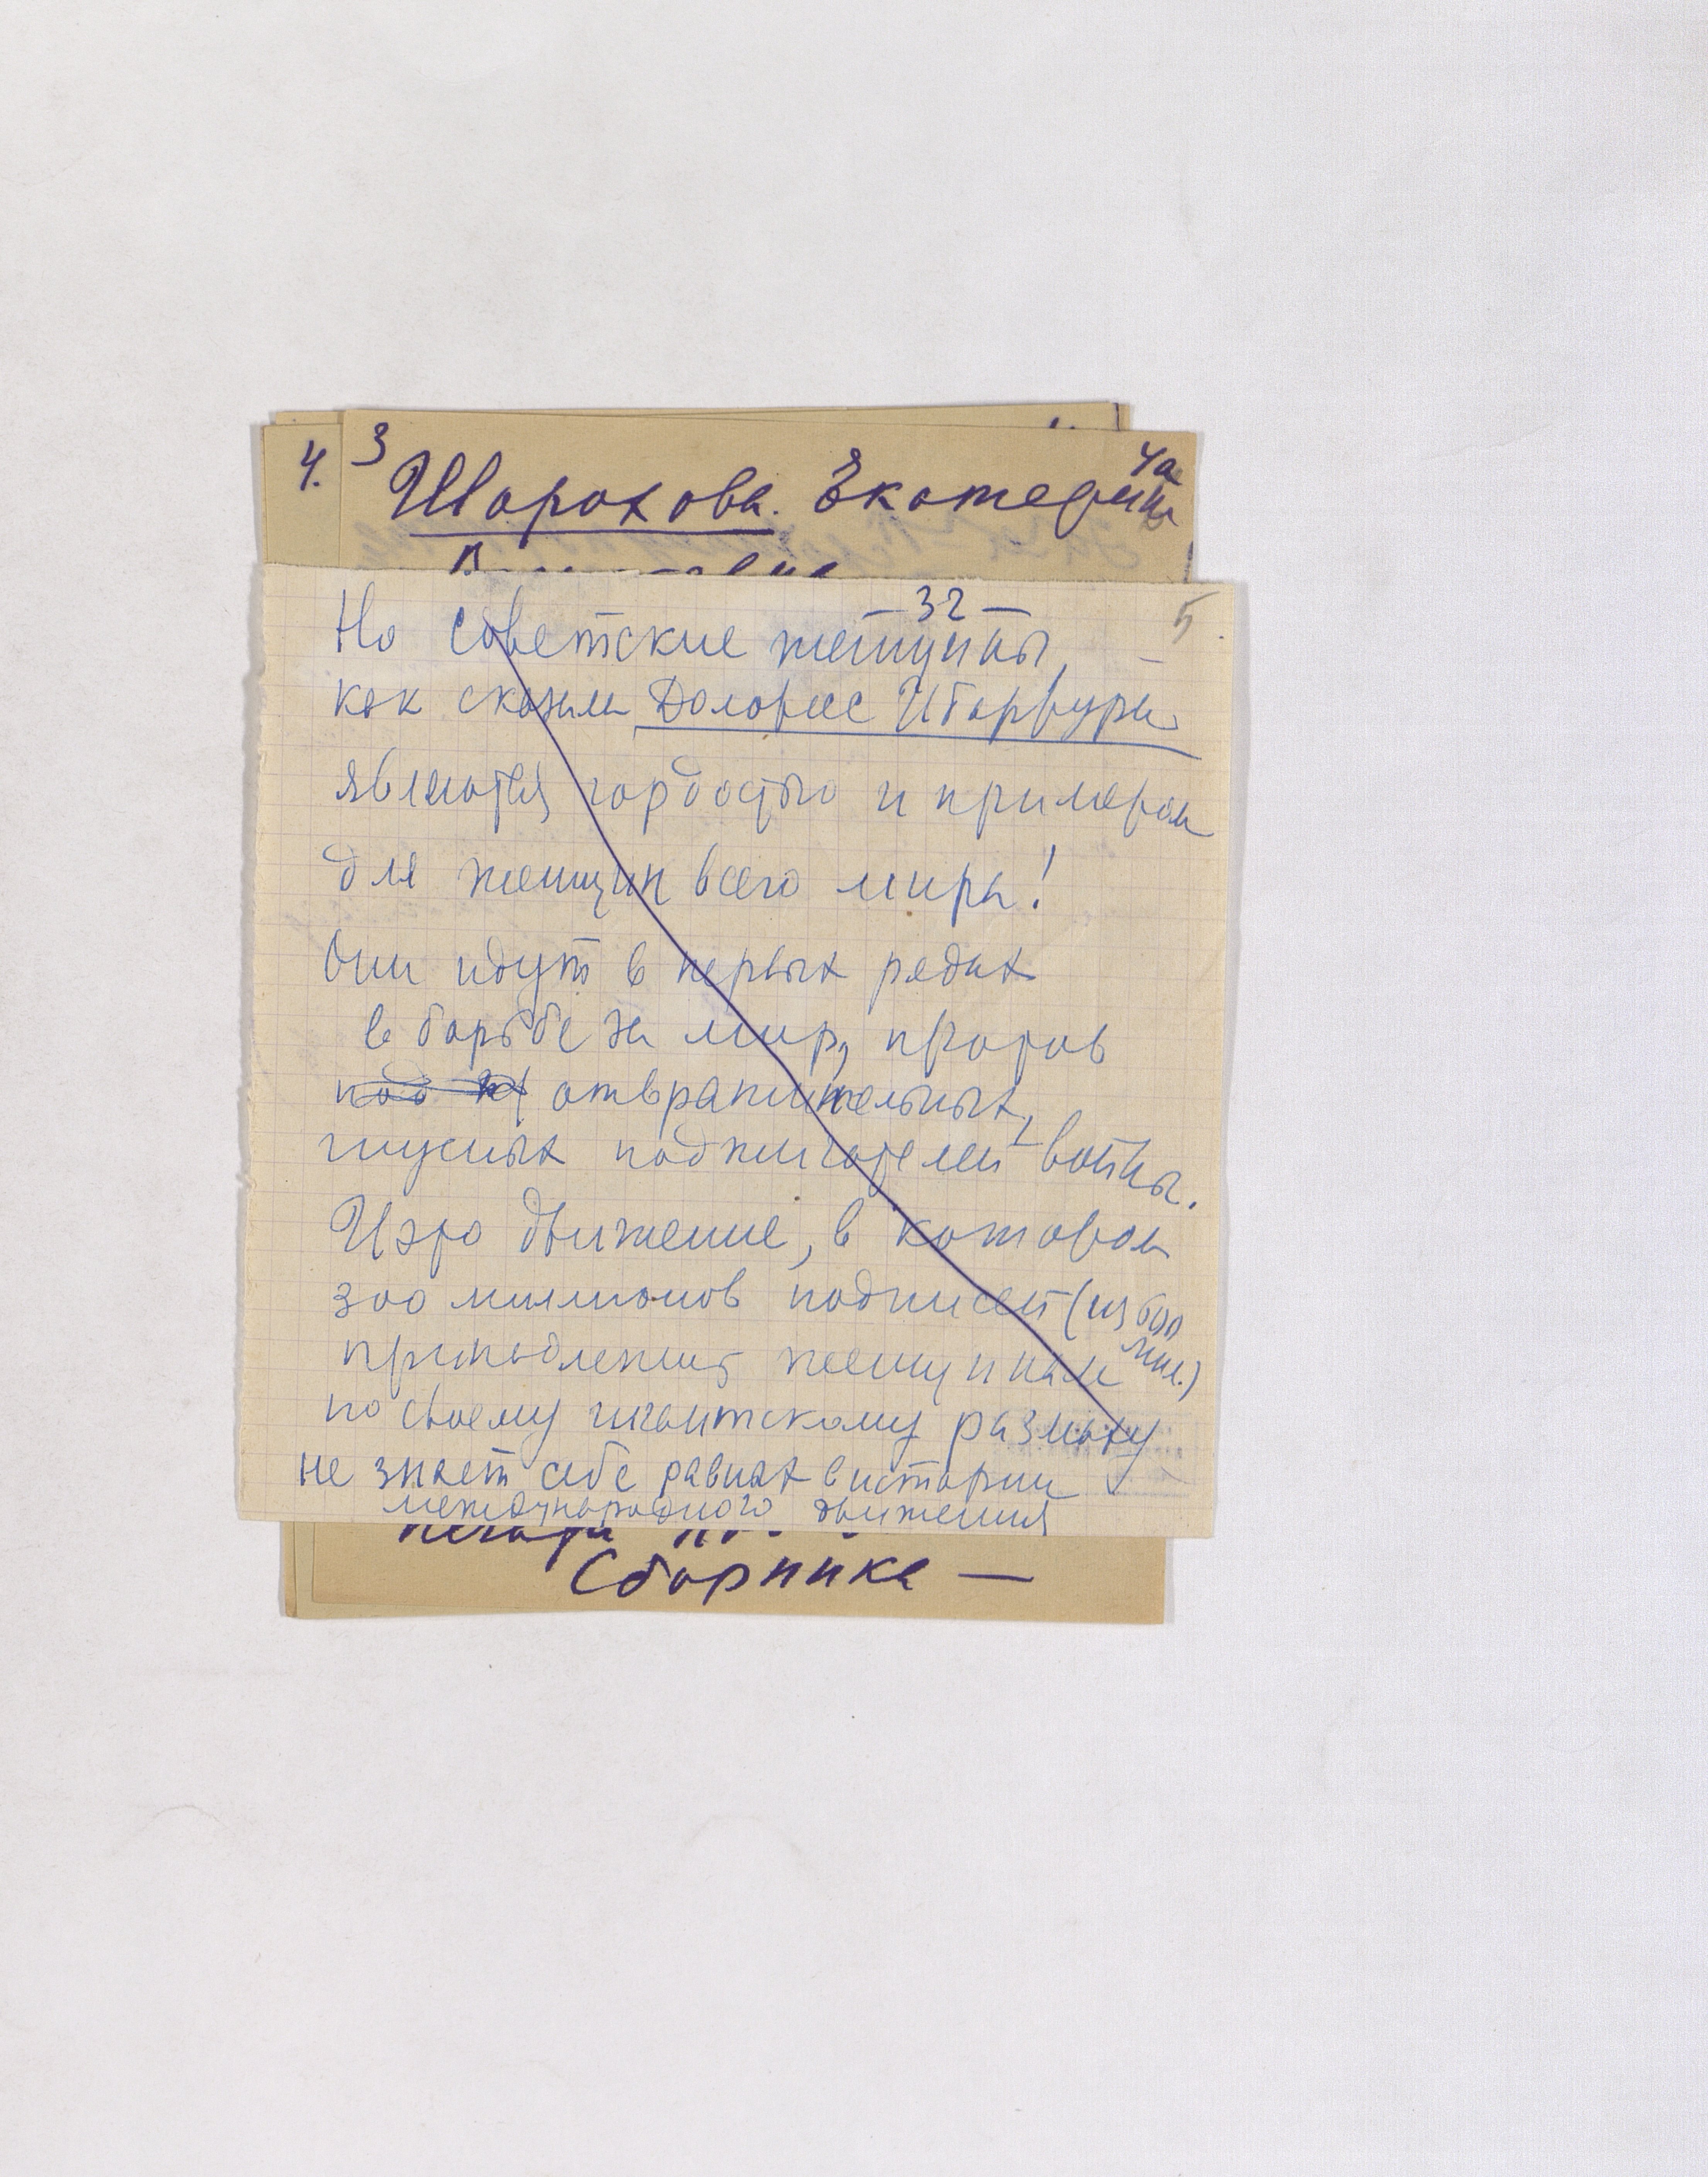 4. 3 4а
Шорохова. Екатерин
— 32 — 5
Но советские женщины,
как сказала Долорес Ибаррури
являются гордостью и примером
для женщин всего мира!
Они идут в первых рядах
в борьбе за мир, против
отвратительных,
гнусных поджигателей войны.
И это движение, в котором
300 миллионов подписей (из 600
мил.)
принадлежит женщинам
по своему гигантскому размаху
не знает себе равных в истории
международного движения
печати
Сборника —